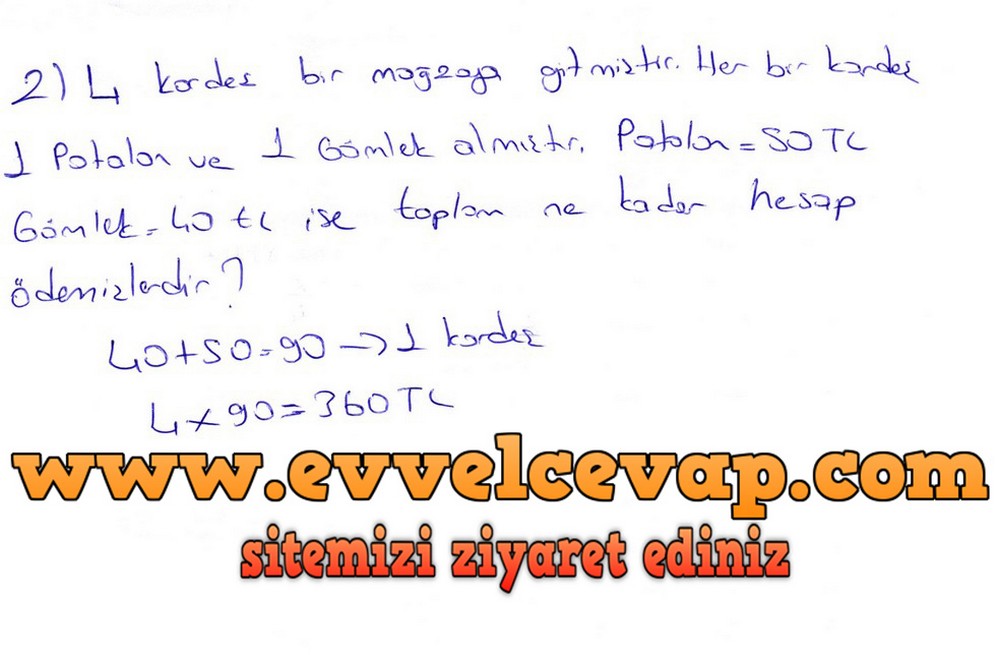 2) 4 kardeş bir mağzaya gitmiştir. Her bir kardeş
1 Patalon ve 1 Gömlek almıştır. Patalon = 50 TL
Gömlek = 40 tl ise toplam ne kadar hesap
ödemişlerdir?
40+50=90 → 1 kardeş
4 x 90 = 360 TL
www.evvelcevap.com
sitemizi ziyaret ediniz